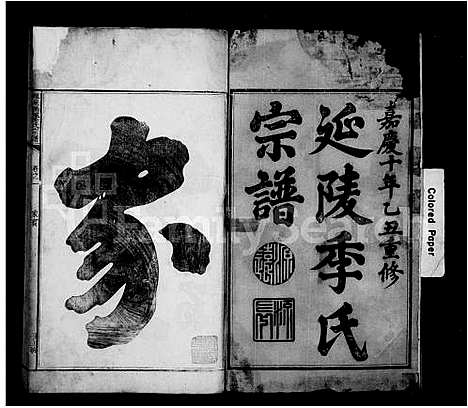 嘉慶十年乙丑重修
延陵季氏
宗譜
家
Colored Paper
FamilySearch